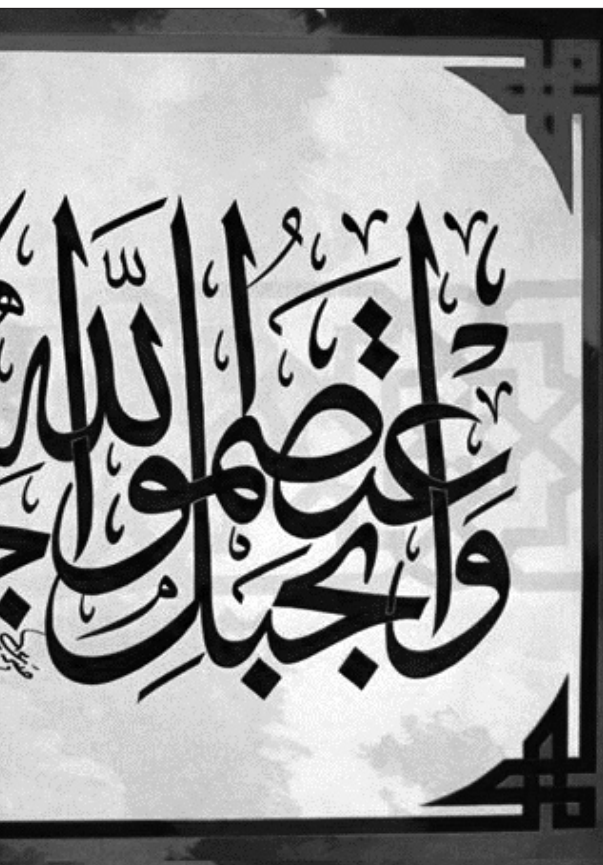 واعتصموا بحبل الله